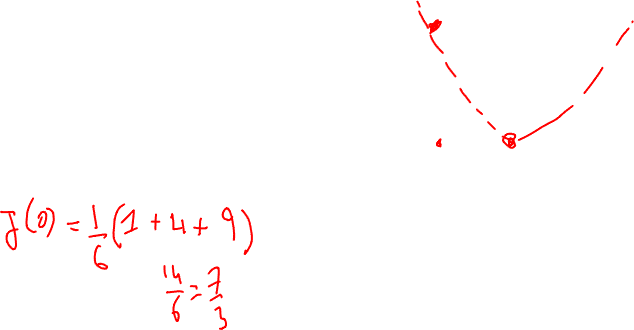 J(0) = 1/6 (1 + 4 + 9)
14/6 = 7/3